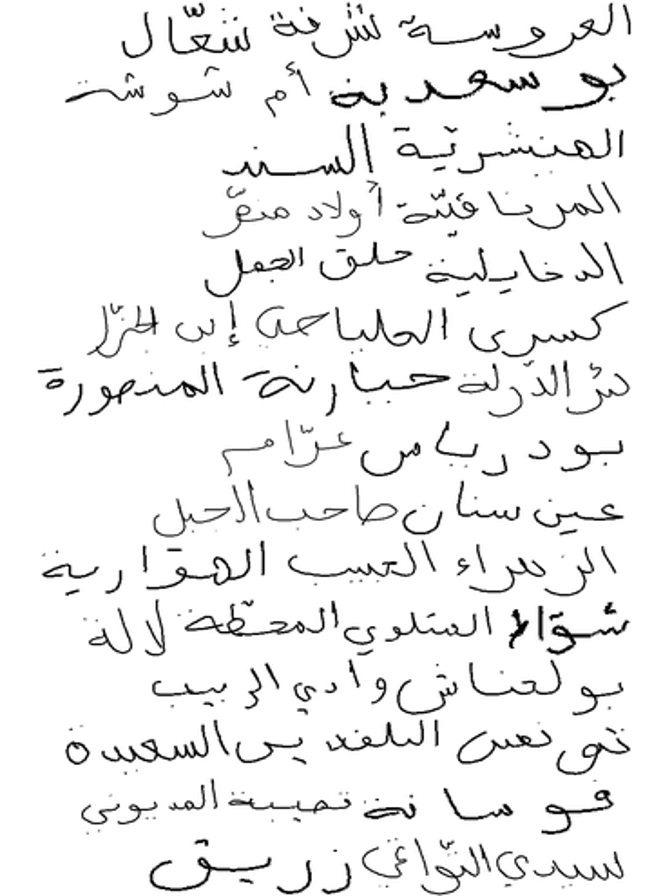 العروسة شرفة شعّال
بو سعدية أم شوشة
الهنشريّة السند
المرناقيّة أولاد منصّر
الدخايلية حلق الجمل
كسرى الحلبا حي إبن الجزّار
بئر الدّولة خبارنة المنصورة
بودرياس عزّام
عين سنان صاحب الجبل
الزهراء العيب الهوّارية
المتلوي المحطّة لالة
بولعناش وادي الزبيب
السعيدة
قوسانة المديوني
سيدي التّواتي زريق